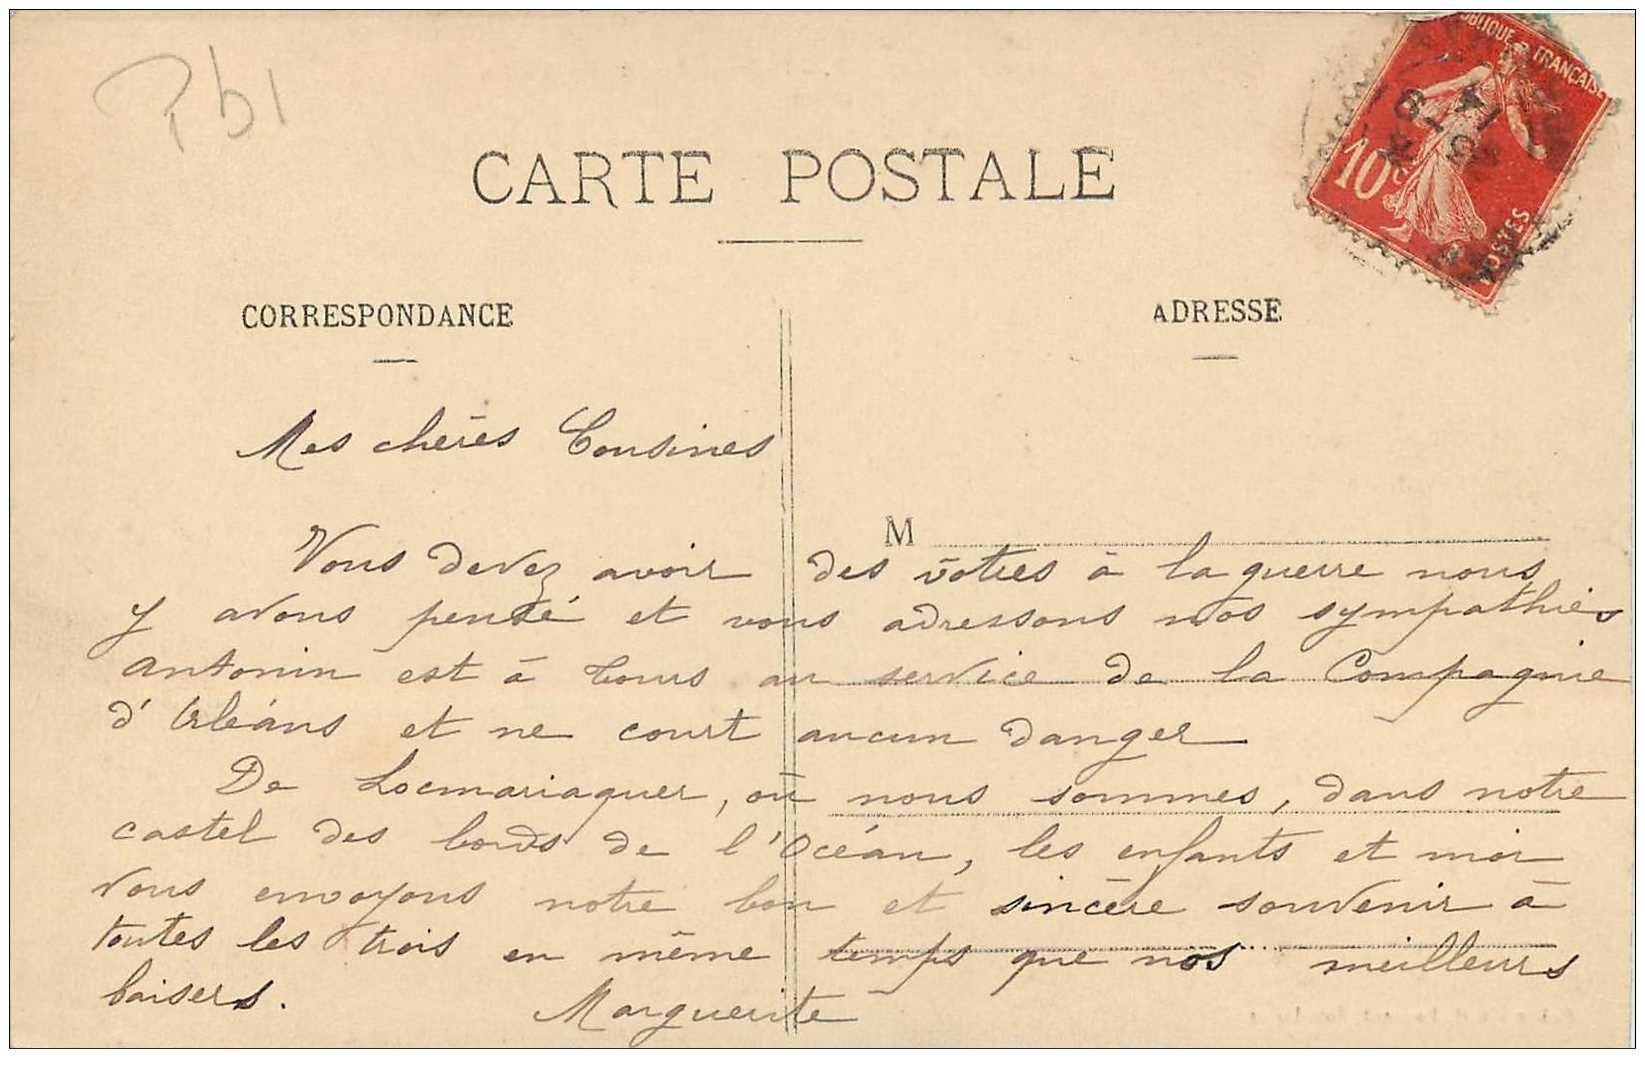 Pb1
RÉPUBLIQUE FRANÇAISE
10c
POSTES
CARTE POSTALE
CORRESPONDANCE
ADRESSE
Mes chères Cousines
M
Vous devez avoir des vôtres à la guerre nous
y avons pensé et vous adressons nos sympathies
Antonin est à Tours au service de la Compagnie
d'Orléans et ne court aucun danger
De Locmariaquer, où nous sommes, dans notre
castel des bords de l'Océan, les enfants et moi
vous envoyons notre bon et sincère souvenir à
toutes les trois en même temps que nos meilleurs
baisers. Marguerite